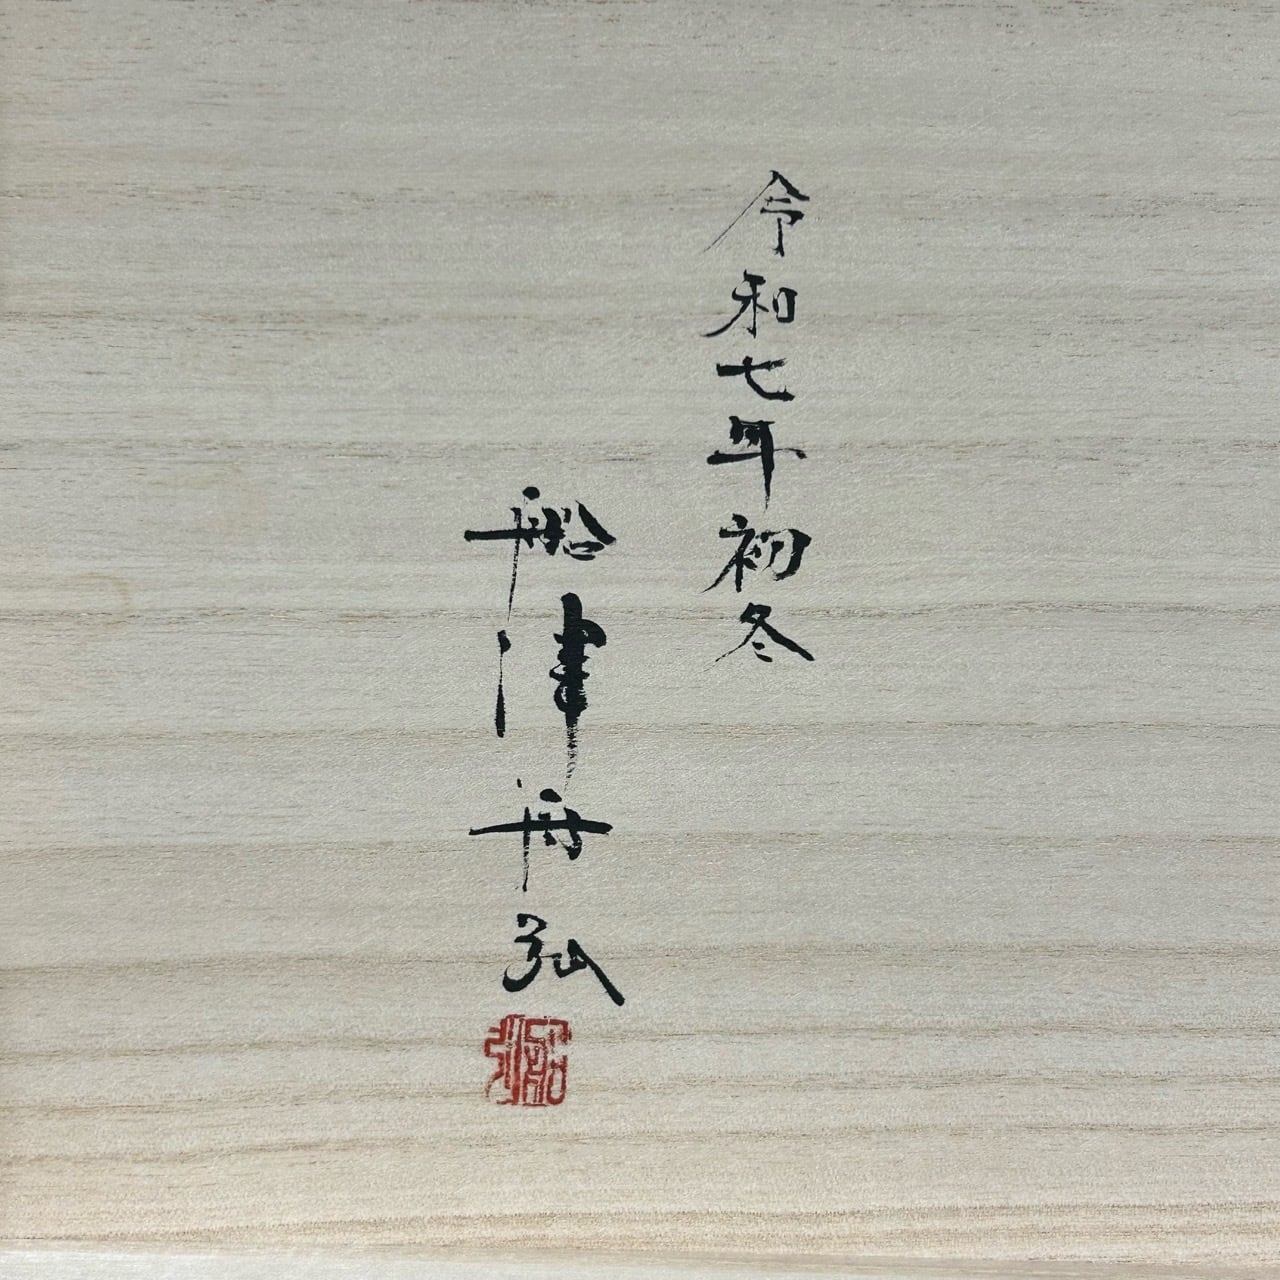 令和七年初冬
船津舟弘